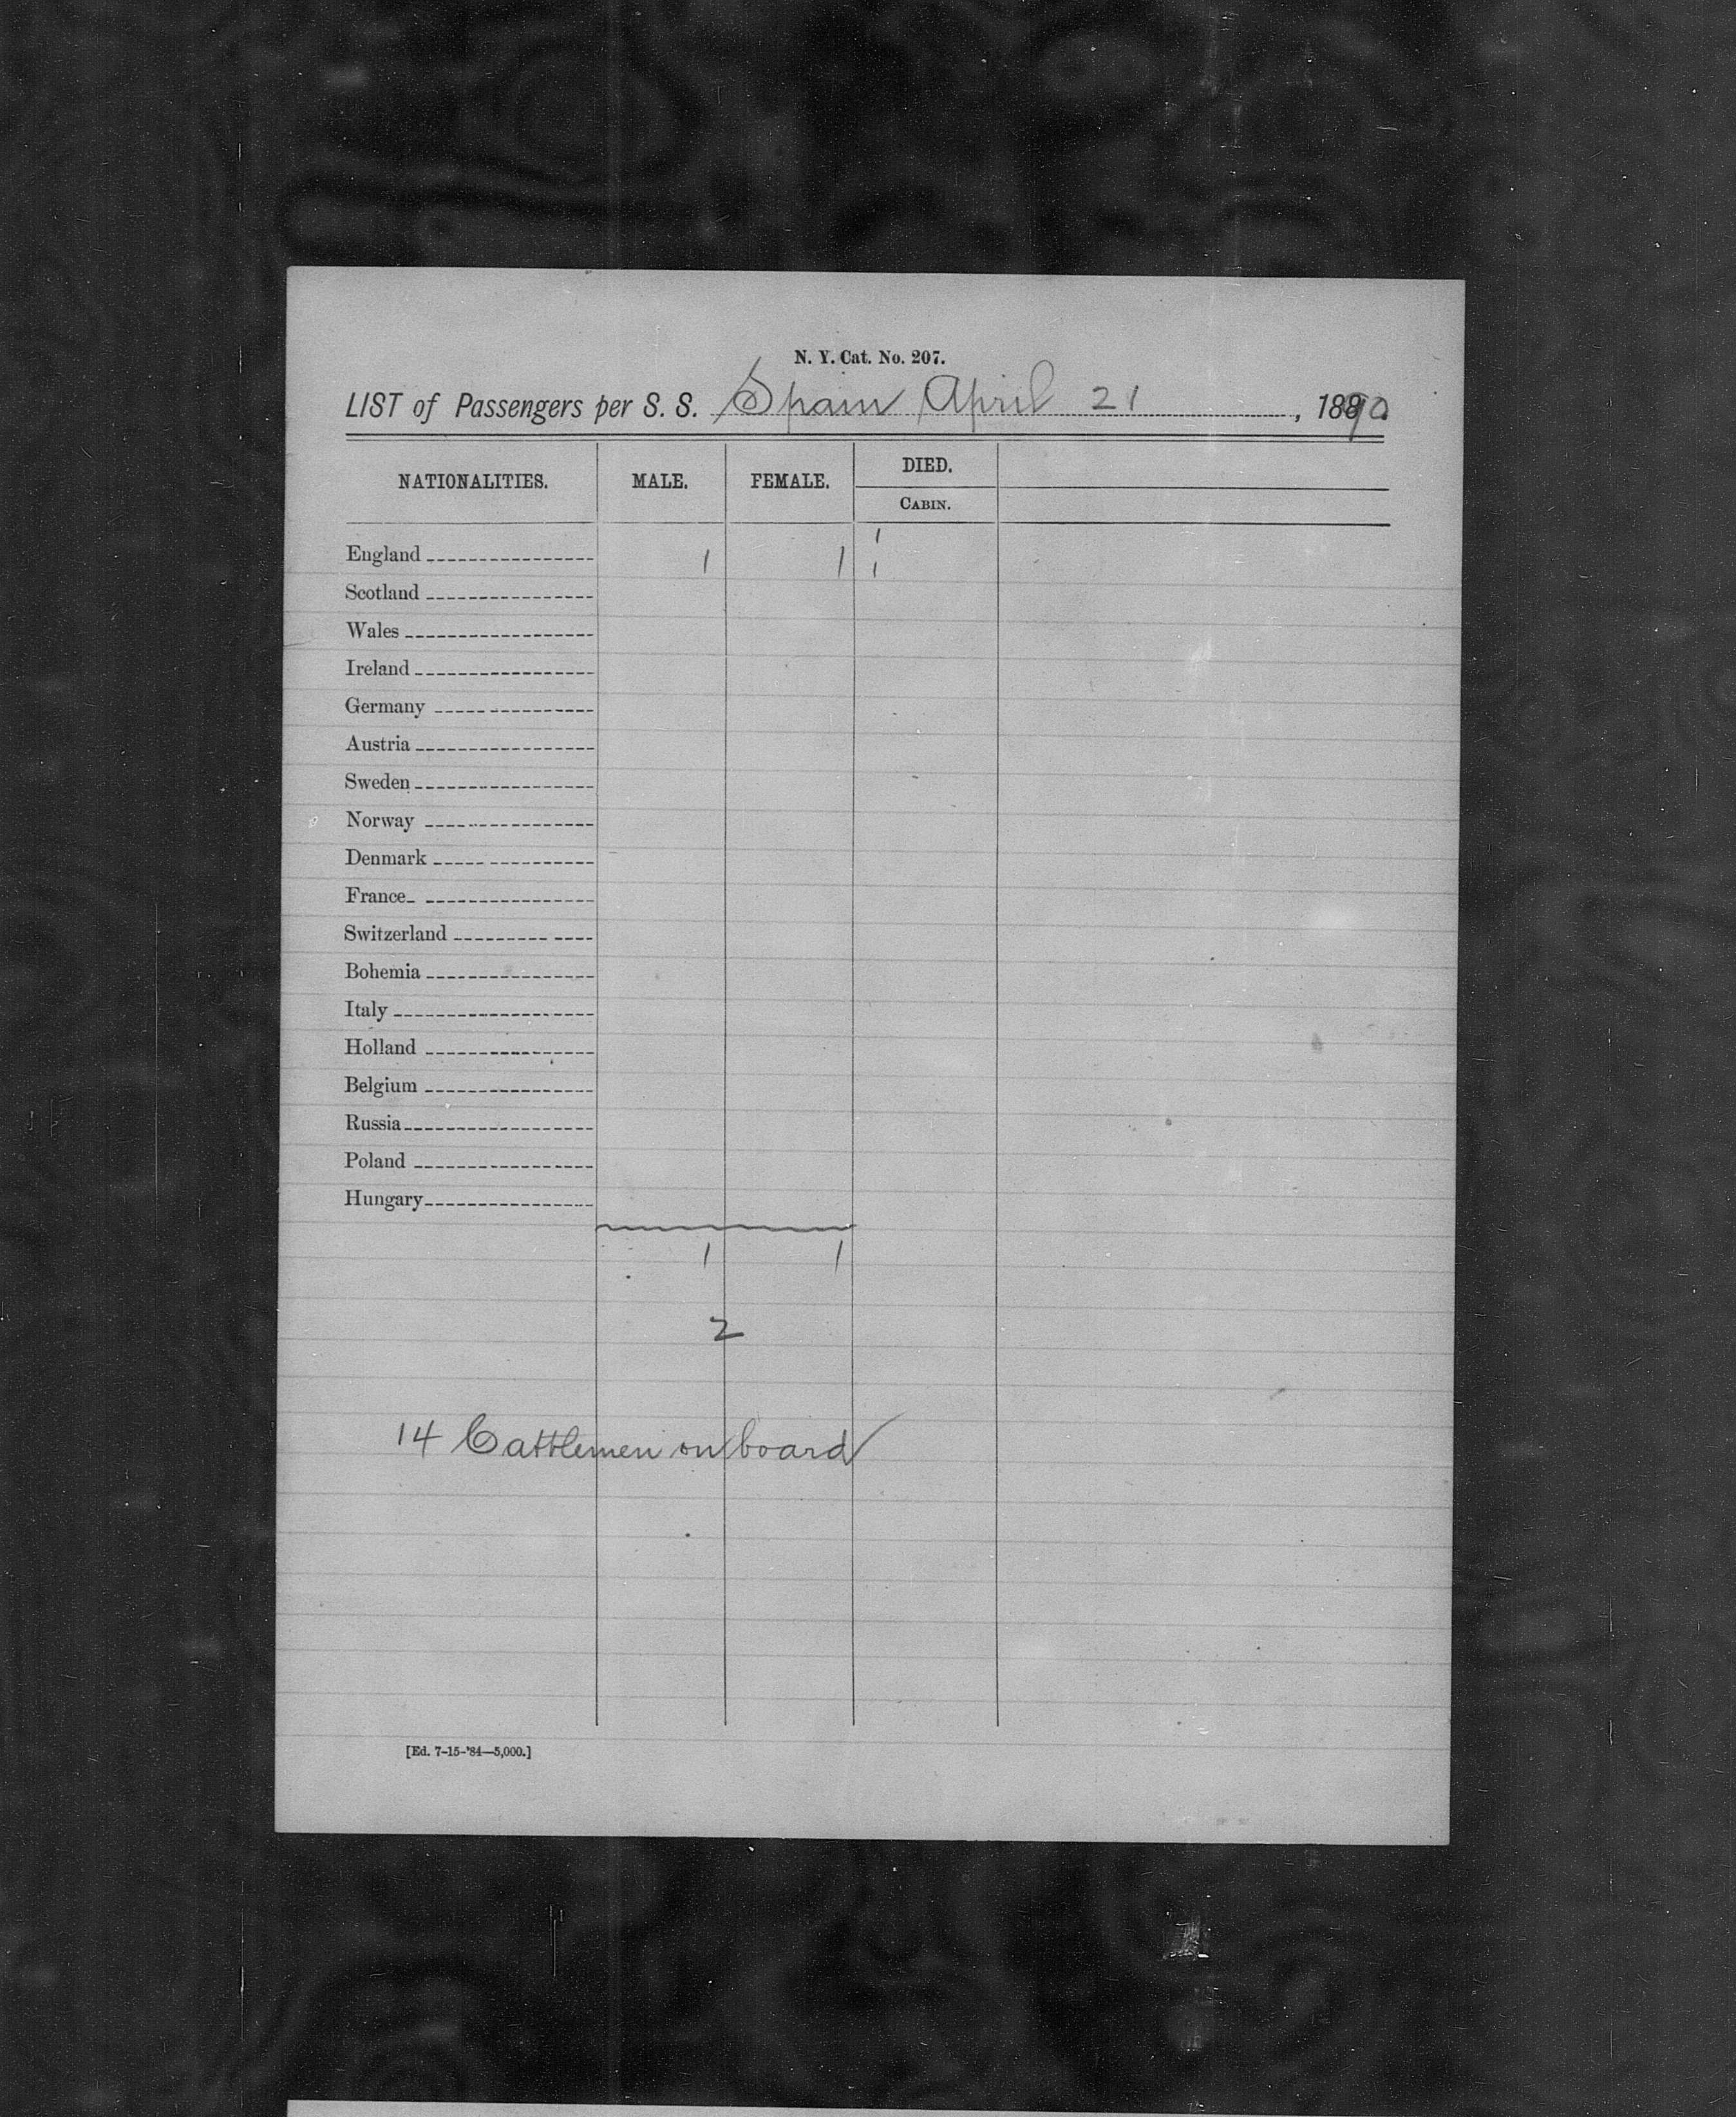 N. Y. Cat. No. 207.
LIST of Passengers per S. S. Spain April 21, 1890
NATIONALITIES. MALE. FEMALE. DIED.
CABIN.
England 1 1 1
1
Scotland
Wales
Ireland
Germany
Austria
Sweden
Norway
Denmark
France
Switzerland
Bohemia
Italy
Holland
Belgium
Russia
Poland
Hungary
1 1
2
14 Cattlemen on board
[Ed. 7-15-'84—5,000.]